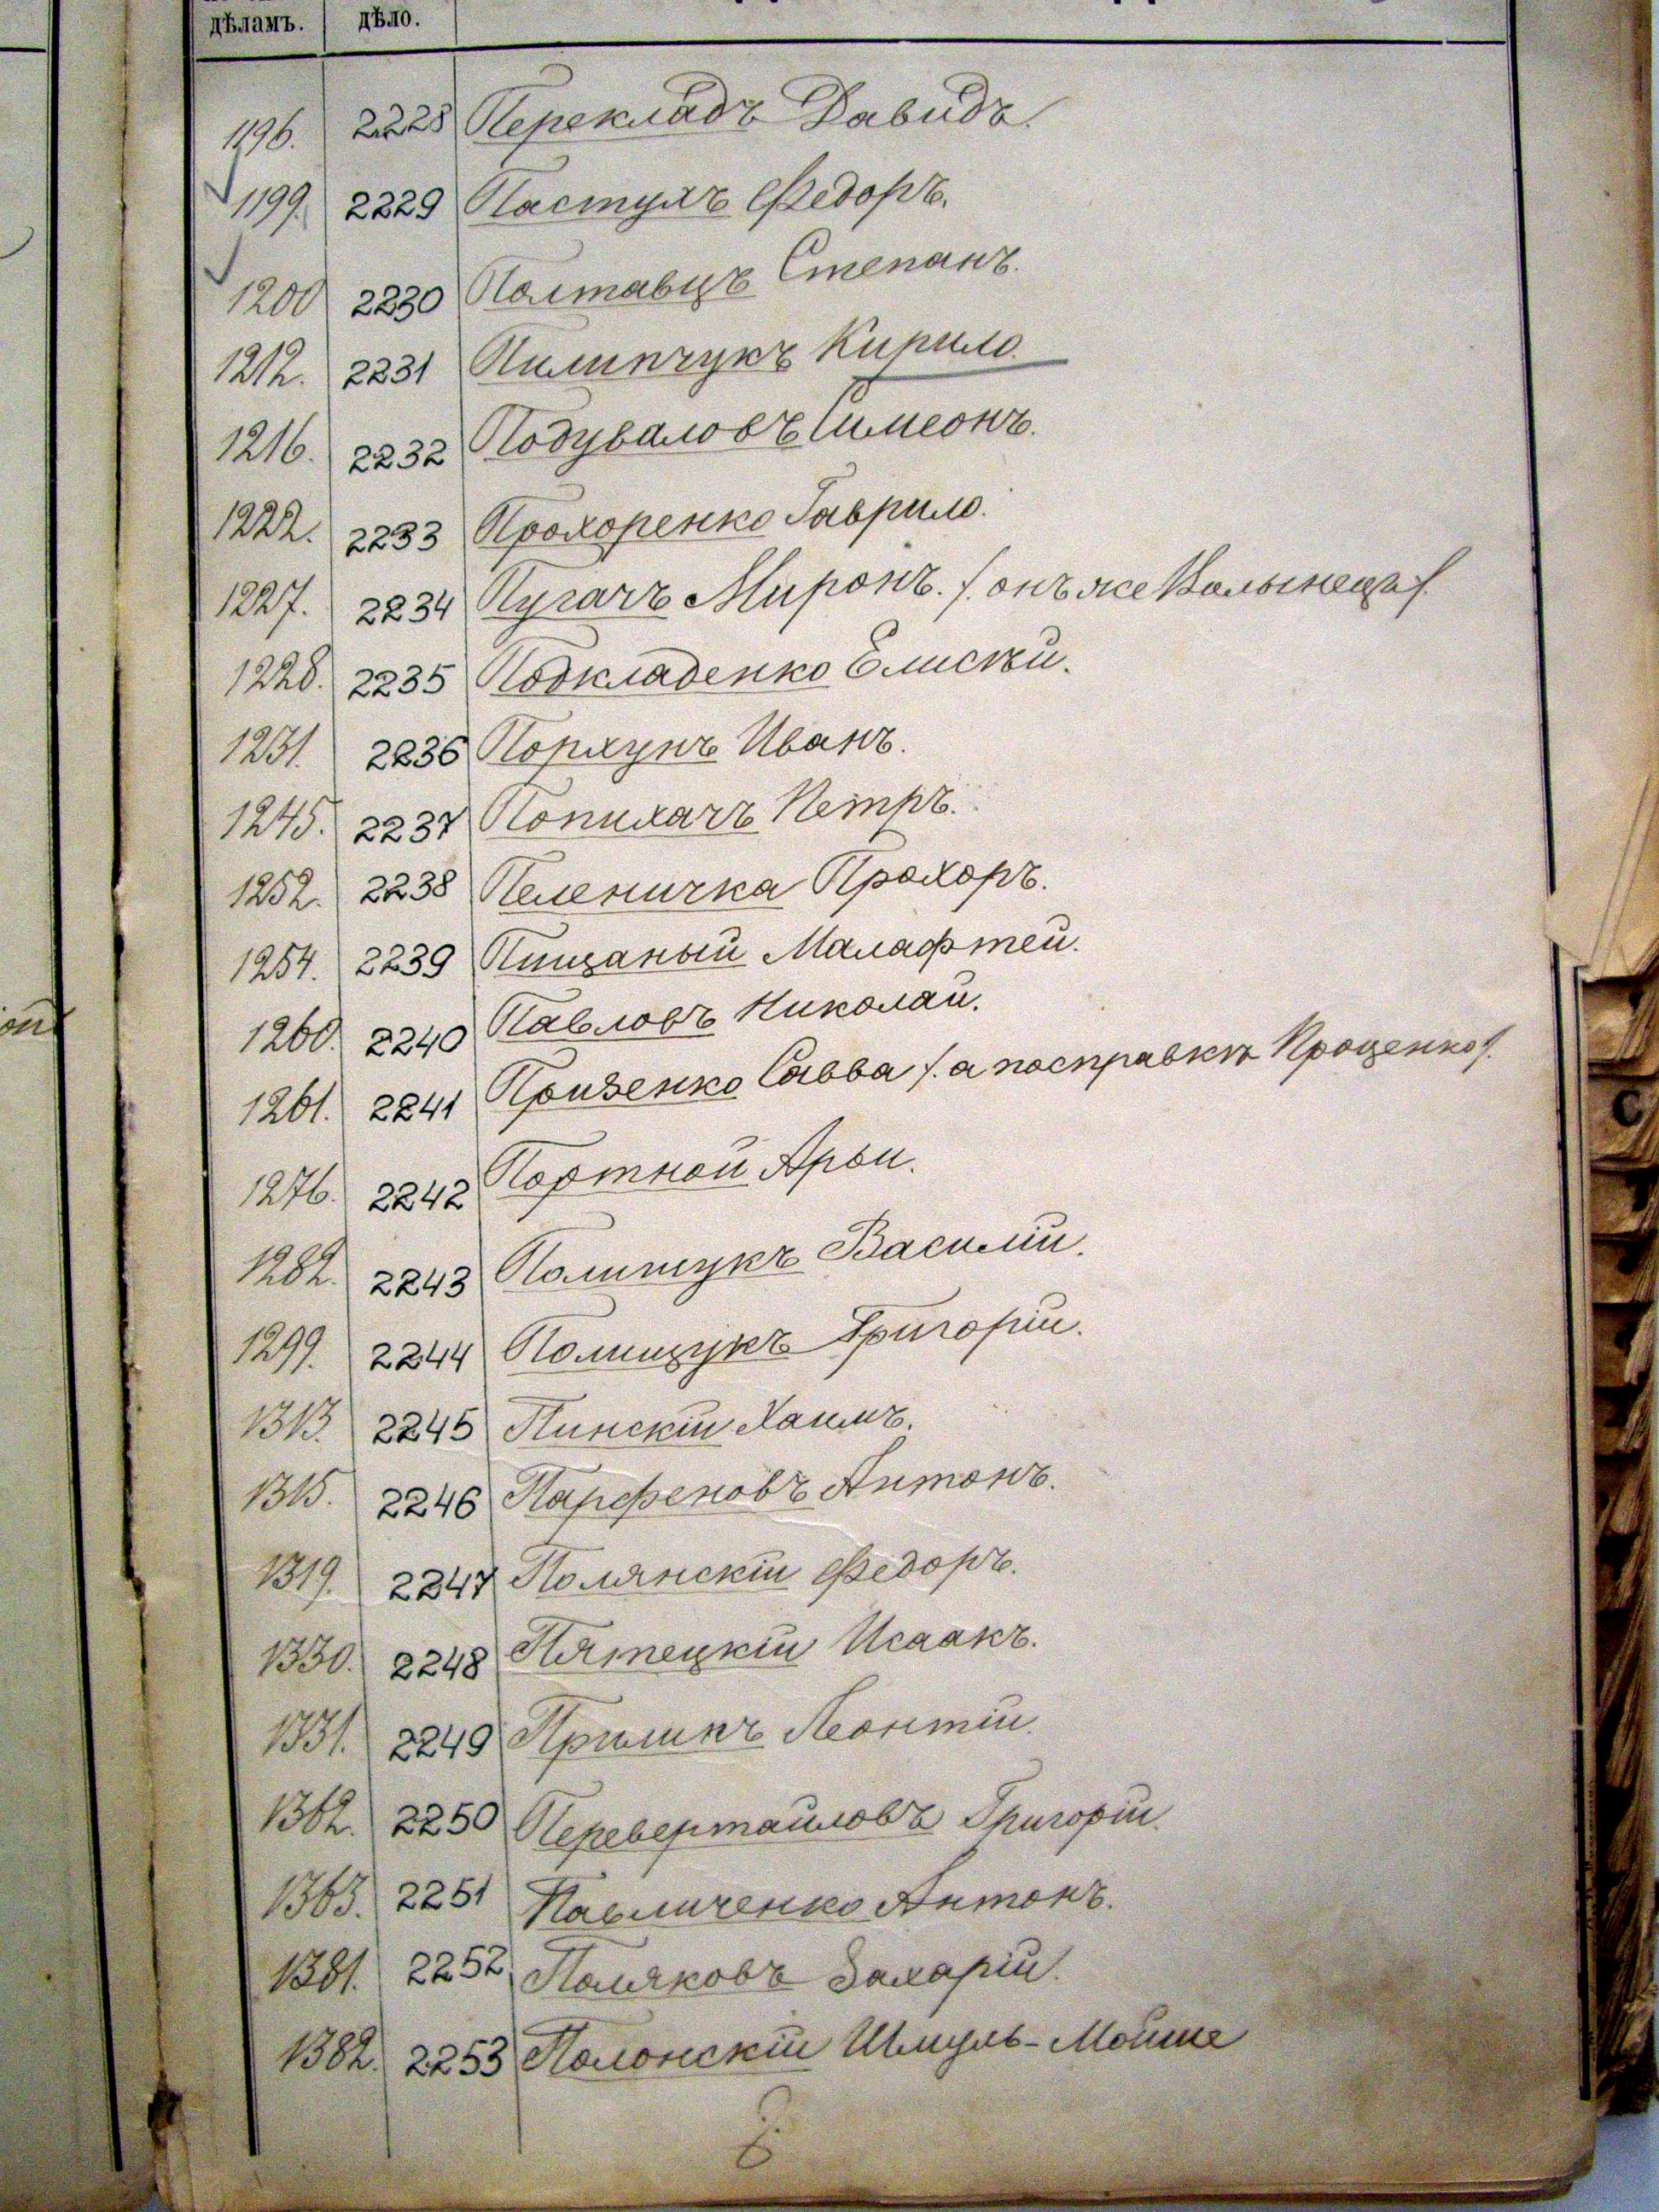 дѣламъ. дѣло.
1196. 2228 Перекладъ Давидъ.
1199. 2229 Пастухъ Федоръ.
1200 2230 Полтавцъ Степанъ.
1212. 2231 Пилипчукъ Кирило.
1216. 2232 Подуваловъ Симеонъ.
1222. 2233 Прохоренко Гаврило.
1227. 2234 Пугачъ Миронъ. /. онъ же Волынецъ /.
1228. 2235 Подкладенко Елисѣй.
1231. 2236 Порхунъ Иванъ.
1245. 2237 Попихачъ Петръ.
1252. 2238 Пеленичка Прохоръ.
1254. 2239 Пищаный Малафтей.
1260. 2240 Павловъ Николай.
1261. 2241 Приженко Савва /. а посправкѣ Проценко /.
1276. 2242 Портной Арон.
1282. 2243 Полищукъ Василій.
1299. 2244 Полищукъ Григорій.
1313. 2245 Пинскій Хаимъ.
1315. 2246 Парфеновъ Антонъ.
1319. 2247 Полянскій Федоръ.
1330. 2248 Пятецкій Исаакъ.
1331. 2249 Прилипъ Леонтій.
1362. 2250 Перевертайловъ Григорій.
1363. 2251 Павличенко Антонъ.
1381. 2252 Поляковъ Захарій.
1382. 2253 Полонскій Шмуль-Мойше
С